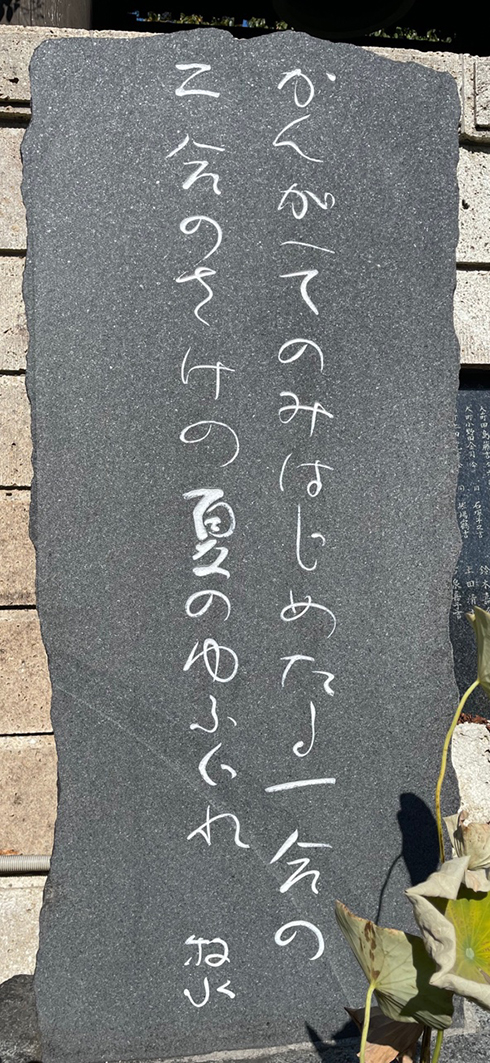 かんがへてのみはじめたる一合の
二合のさけの夏のゆふぐれ 牧水